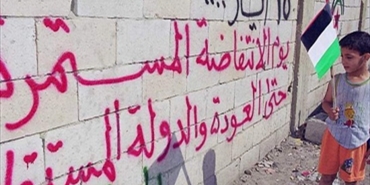 ١٥ ايار...
يوم الانتفاضة المستمرة
حتى العودة والدولة المستقلة